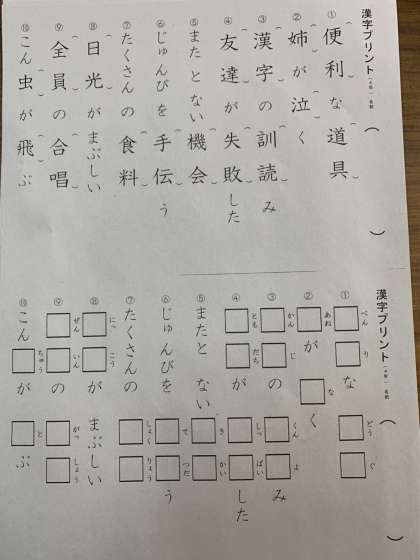 漢字プリント
① 便利な道具
② 姉が泣く
③ 漢字の訓読み
④ 友達が失敗した
⑤ またとない機会
⑥ じゅんびを手伝う
⑦ たくさんの食料
⑧ 日光がまぶしい
⑨ 全員の合唱
⑩ こん虫が飛ぶ
漢字プリント
① べん り な どう ぐ
② あね が な く
③ かん じ の くん よ み
④ とも だち が しっ ぱい した
⑤ またと ない き かい
⑥ じゅんびを て つだ う
⑦ たくさんの しょく りょう
⑧ にっ こう が まぶしい
⑨ ぜん いん の がっ しょう
⑩ こん ちゅう が と ぶ